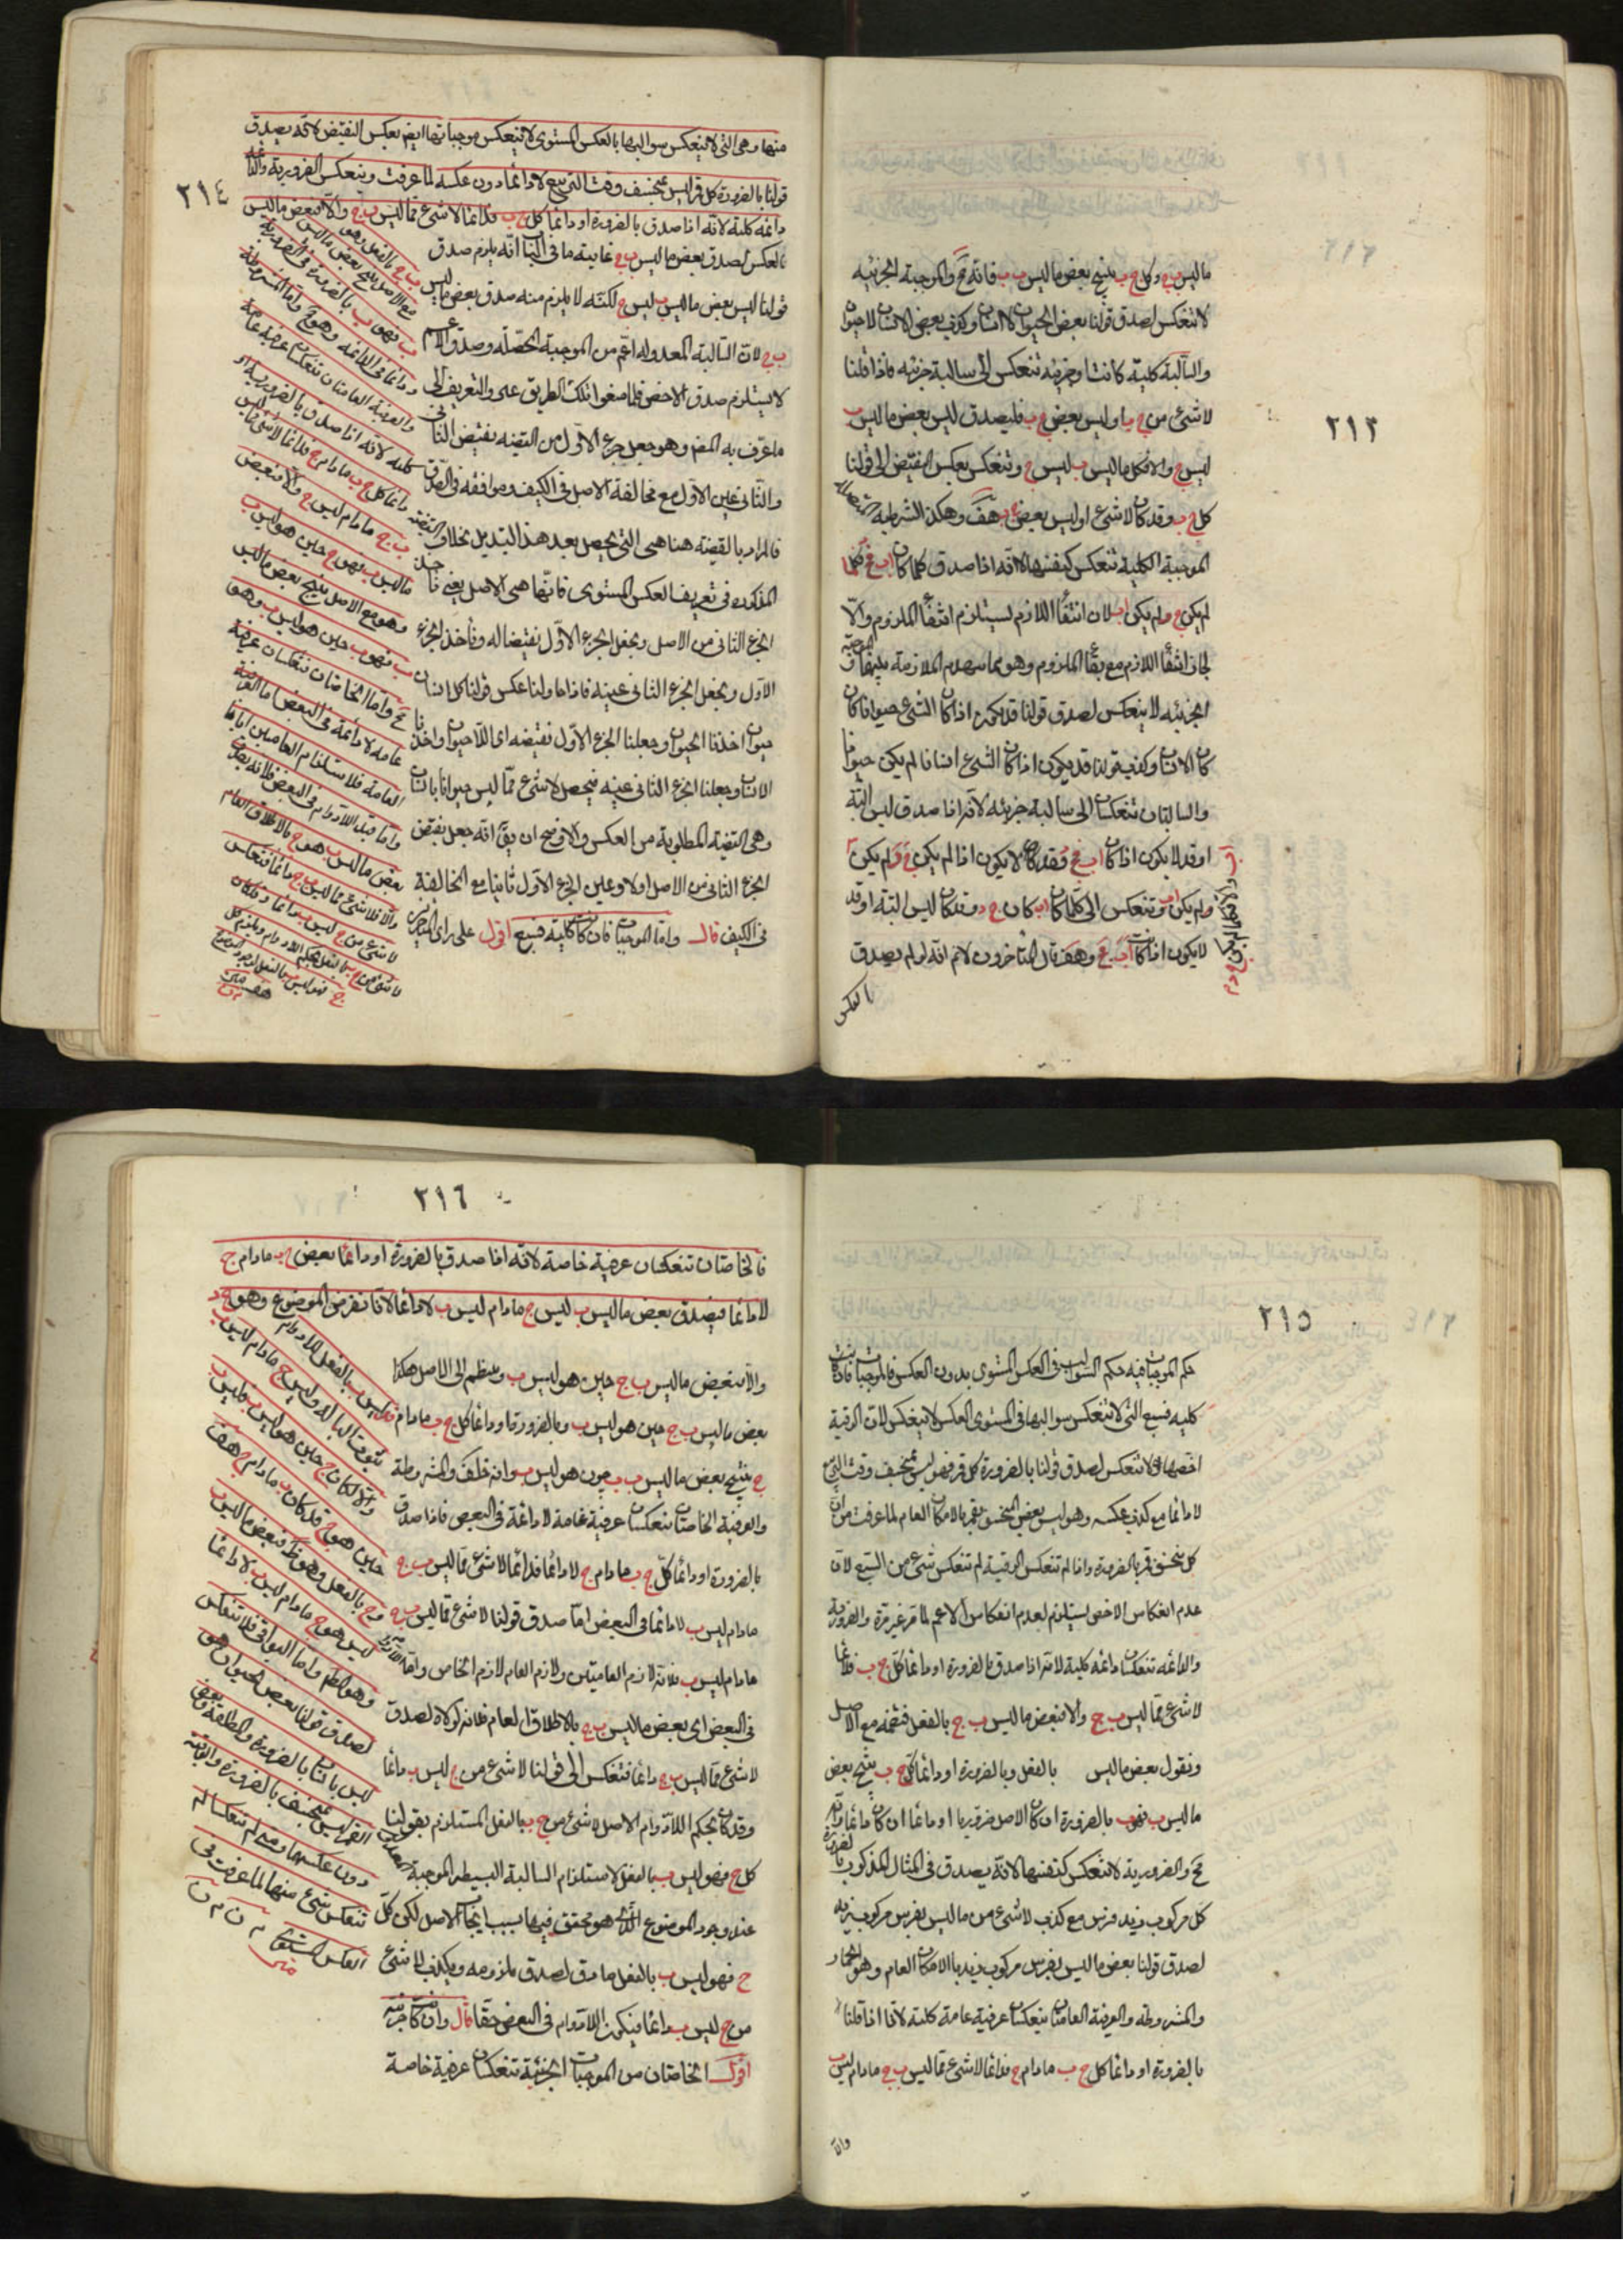 ٢١٣
ما ليس ب ج وكل ج ب ينتج بعض ما ليس ب ب فانه مح والموجبة الجزئيه
لا تنعكس لصدق قولنا بعض الحيوان لا انسان وكذب بعض الانسان لا حيوان
والسالبة كلية كانت او جزئيه تنعكس الى سالبة جزئيه فاذا قلنا
لا شئ من ج ب او ليس بعض ج ب فليصدق ليس بعض ما ليس ب
ليس ج والا فكل ما ليس ب ليس ج وتنعكس بعكس النقيض الى قولنا
كل ج ب وقد كان لا شئ او ليس بعض ج ب هف وهكذا الشرطيه
الموجبة الكلية تنعكس كنفسها لانه اذا صدق كلما كان اب فج د فكلما
لم يكن ج د لم يكن اب لان انتفاء اللازم يستلزم انتفاء الملزوم والا
لجاز انتفاء اللازم مع بقاء الملزوم وهو مما يهدم الملازمة بينهما والموجبة
الجزئيه لا ينعكس لصدق قولنا قد يكون اذا كان الشئ حيوانا كان
كان الانسان وكذب قولنا قد يكون اذا كان الشئ انسانا لم يكن حيوانا
والسالبتان تنعكسان الى سالبة جزئيه لانه اذا صدق ليس البتة
او قد لا يكون اذا كان اب فج د فقد لا يكون اذا لم يكن ج د لم يكن
ولم يكن اب وتنعكس الى كلما كان اب كان ج د وقد كان ليس البتة او قد
لا يكون اذا كان اب فج د وهف قال المتأخرون لانم انه لو لم يصدق
بالعكس
٢١٤
بالعكس لصدق بعض ما ليس ب ج غاية ما فى الباب انه يلزم صدق
قولنا ليس بعض ما ليس ب ليس ج لكنه لا يلزم منه صدق بعض ما ليس
ب ج لان السالبة المعدوله اعم من الموجبة المحصله وصدق الاعم
لا يستلزم صدق الاخص فلما منعوا تلك الطريق غيروا التعريف الى
ما عرف به المص وهو جعل جزء الاول من القضيه نقيض الثانى
والثانى عين الاول مع مخالفة الاصل فى الكيف وموافقه فى الصدق
فالمراد بالقضيه هنا هى التى يحصل بعد هذا التبديل بخلاف القضيه
المذكوره فى تعريف العكس المستوى فانها هى الاصل يعنى ناخذ
الجزء الثانى من الاصل ويجعل الجزء الاول نقيضا له وناخذ الجزء
الاول ويجعل الجزء الثانى عينه فاذا حاولنا عكس قولنا كل انسان
حيوان اخذنا الحيوان وجعلنا الجزء الاول نقيضه اى اللا حيوان واخذنا
الانسان وجعلنا الجزء الثانى عينه فيحصل لا شئ مما ليس حيوانا بانسان
وهى القضية المطلوبة من العكس والاوضح ان يق انه جعل نقيض
الجزء الثانى من الاصل اولا وعين الجزء الاول ثانيا مع المخالفة
فى الكيف قال واما الموجبات فان كانت كلية فسبع اقول على راى المتأخرين
منها وهى التى لا ينعكس سوالبها بالعكس المستوى لا تنعكس موجباتها ايض بعكس النقيض لانه يصدق
قولنا بالضرورة كل قمر ليس بمنخسف وقت التربيع لا دائما دون عكسه لما عرفت وتنعكس الضرورية والدائمة
دائمه كلية لانه اذا صدق بالضرورة او دائما كل ج ب فدائما لا شئ مما ليس ب ج والا فبعض ما ليس
ب ج بالفعل وهو
مع الاصل ينتج بعض ما ليس
ب فهو ب بالضرورة فى الضرورية
ودائما فى الدائمه وهو مح واما المشروطة
والعرفية العامتان تنعكسان عرفية عامة
كلية لانه اذا صدق بالضرورة او
دائما كل ج ب ما دام ج فدائما لا شئ مما ليس
ب ج ما دام ليس ب والا فبعض
ما ليس ب فهو ج حين هو ليس ب
وهو مع الاصل ينتج بعض ما ليس
ب فهو ب حين هو ليس ب وهو
مح واما الخاصتان تنعكسان عرفية
عامه لا دائمة فى البعض اما العرفية
العامة فلاستلزام العامتين اياها
واما قيد اللا دوام فى البعض فلانه يصدق
بعض ما ليس ب هو ج بالاطلاق العام
والا فلا شئ مما ليس ب ج دائما فتنعكس
لا شئ من ج ليس ب دائما وقد كان
٢١٥
حكم الموجبات فيه حكم السوالب فى العكس المستوى بدون العكس فالموجبات ان كانت
كليه فسبع التى لا تنعكس سوالبها فى المستوى العكس لا ينعكس لان الوقتية
اخصها ولا تنعكس لصدق قولنا بالضرورة كل قمر فهو ليس بمنخسف وقت التربيع
لا دائما مع كذب عكسه وهو ليس بعض المنخسف بقمر بالامكان العام لما عرفت من ان
كل منخسف قمر بالضرورة واذا لم تنعكس الوقتية لم تنعكس شئ من السبع لان
عدم انعكاس الاخص يستلزم لعدم انعكاس الاعم لما مر غير مرة والضرورية
والدائمه تنعكسان دائمه كلية لانه اذا صدق بالضرورة او دائما كل ج ب فدائما
لا شئ مما ليس ب ج والا فبعض ما ليس ب ج بالفعل فنضمه مع الاصل
ونقول بعض ما ليس بالفعل وبالضرورة او دائما كل ج ب ينتج بعض
ما ليس ب فهو ب بالضرورة ان كان الاصل ضروريا او دائما ان كان دائما وانه
مح والضرورية لا تنعكس كنفسها لانه يصدق فى المثال المذكور بالضرورة
كل مركوب زيد فرس مع كذب لا شئ من ما ليس بفرس مركوب زيد
لصدق قولنا بعض ما ليس بفرس مركوب زيد بالامكان العام وهو الحمار
والمشروطه والعرفية العامتان تنعكسان عرفية عامة كلية لانا اذا قلنا
بالضرورة او دائما كل ج ب ما دام ج فدائما لا شئ مما ليس ب ج ما دام ليس ب
والا
٢١٦
فالخاصتان تنعكسان عرفية خاصة لانه اذا صدق بالضرورة او دائما بعض ج ب ما دام ج
لا دائما فيصدق بعض ما ليس ب ليس ج ما دام ليس ب لا دائما لانا نفرض الموضوع وهو ج د
والا فبعض ما ليس ب ج حين هو ليس ب وينظم الى الاصل هكذا
بعض ما ليس ب ج حين هو ليس ب وبالضرورة او دائما كل ج ب ما دام
ج ينتج بعض ما ليس ب ب حين هو ليس ب وانه خلف والمشروطة
والعرفية الخاصتان تنعكسان عرفية عامة لا دائمة فى البعض فاذا صدق
بالضرورة او دائما كل ج ب ما دام ج لا دائما فدائما لا شئ مما ليس ب ج
ما دام ليس ب لا دائما فى البعض اما صدق قولنا لا شئ مما ليس ب ج
ما دام ليس ب فلانه لازم العامتين ولازم العام لازم الخاص واما اللا دوام
فى البعض اى بعض ما ليس ب ج بالاطلاق العام فلانه لولاه لصدق
لا شئ مما ليس ب ج دائما فتنعكس الى قولنا لا شئ من ج ليس ب دائما
وقد كان بحكم اللا دوام الاصل لا شئ من ج ب بالفعل المستلزم بقولنا
كل ج فهو ليس ب بالفعل لاستلزام السالبة البسيطه الموجبة
عند وجود الموضوع الذى هو محقق فيها بسبب ايجاب الاصل لكن كل
ج فهو ليس ب بالفعل صادق لصدق ملزومه ويكذب لا شئ
من ج ليس ب دائما فيكون اللا دوام فى البعض حقا قال وان كانت جزئيه
اقول الخاصتان من الموجبات الجزئية تنعكسان عرفية خاصة
والا لكان ج حين هو ليس ب فليس ب
حين هو ج وقد كان ب ما دام ج هف
ليس هو ج ما دام ليس ب لا دائما
وهو المط واما البواقى فلا تنعكس
لصدق قولنا بعض الحيوان هو
ليس بانسان بالضرورة والمطلقة وبعض
القمر ليس بمنخسف بالضرورة الوقتيه
دون عكسهما ومتى لم تنعكسا لم
تنعكس شئ منها لما عرفت فى
العكس المستوى